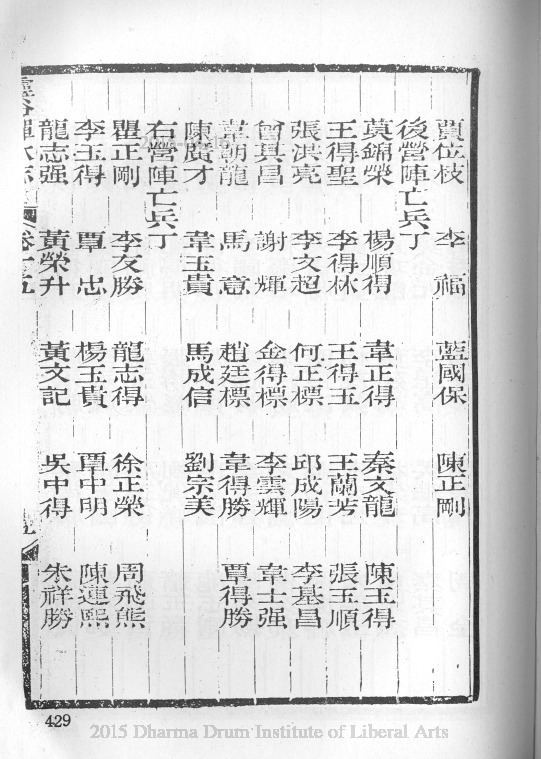 賈位枝 李福 藍國保 陳正剛
後營陣亡兵丁
莫錦榮 楊順得 韋正得 秦文龍 陳玉得
王得聖 李得林 王得玉 王蘭芳 張玉順
張洪亮 李文超 何正標 邱成陽 李基昌
曾其昌 謝輝 金得標 李雲輝 韋士强
韋朝龍 馬意 趙廷標 韋得勝 覃得勝
陳廣才 韋玉貴 馬成信 劉宗美
右營陣亡兵丁
瞿正剛 李友勝 龍志得 徐正榮 周飛熊
李玉得 覃忠 楊玉貴 覃中明 陳連熙
龍志强 黃榮升 黃文記 吳中得 朱祥勝
靈谷禪林志 卷十五
429
2015 Dharma Drum Institute of Liberal Arts